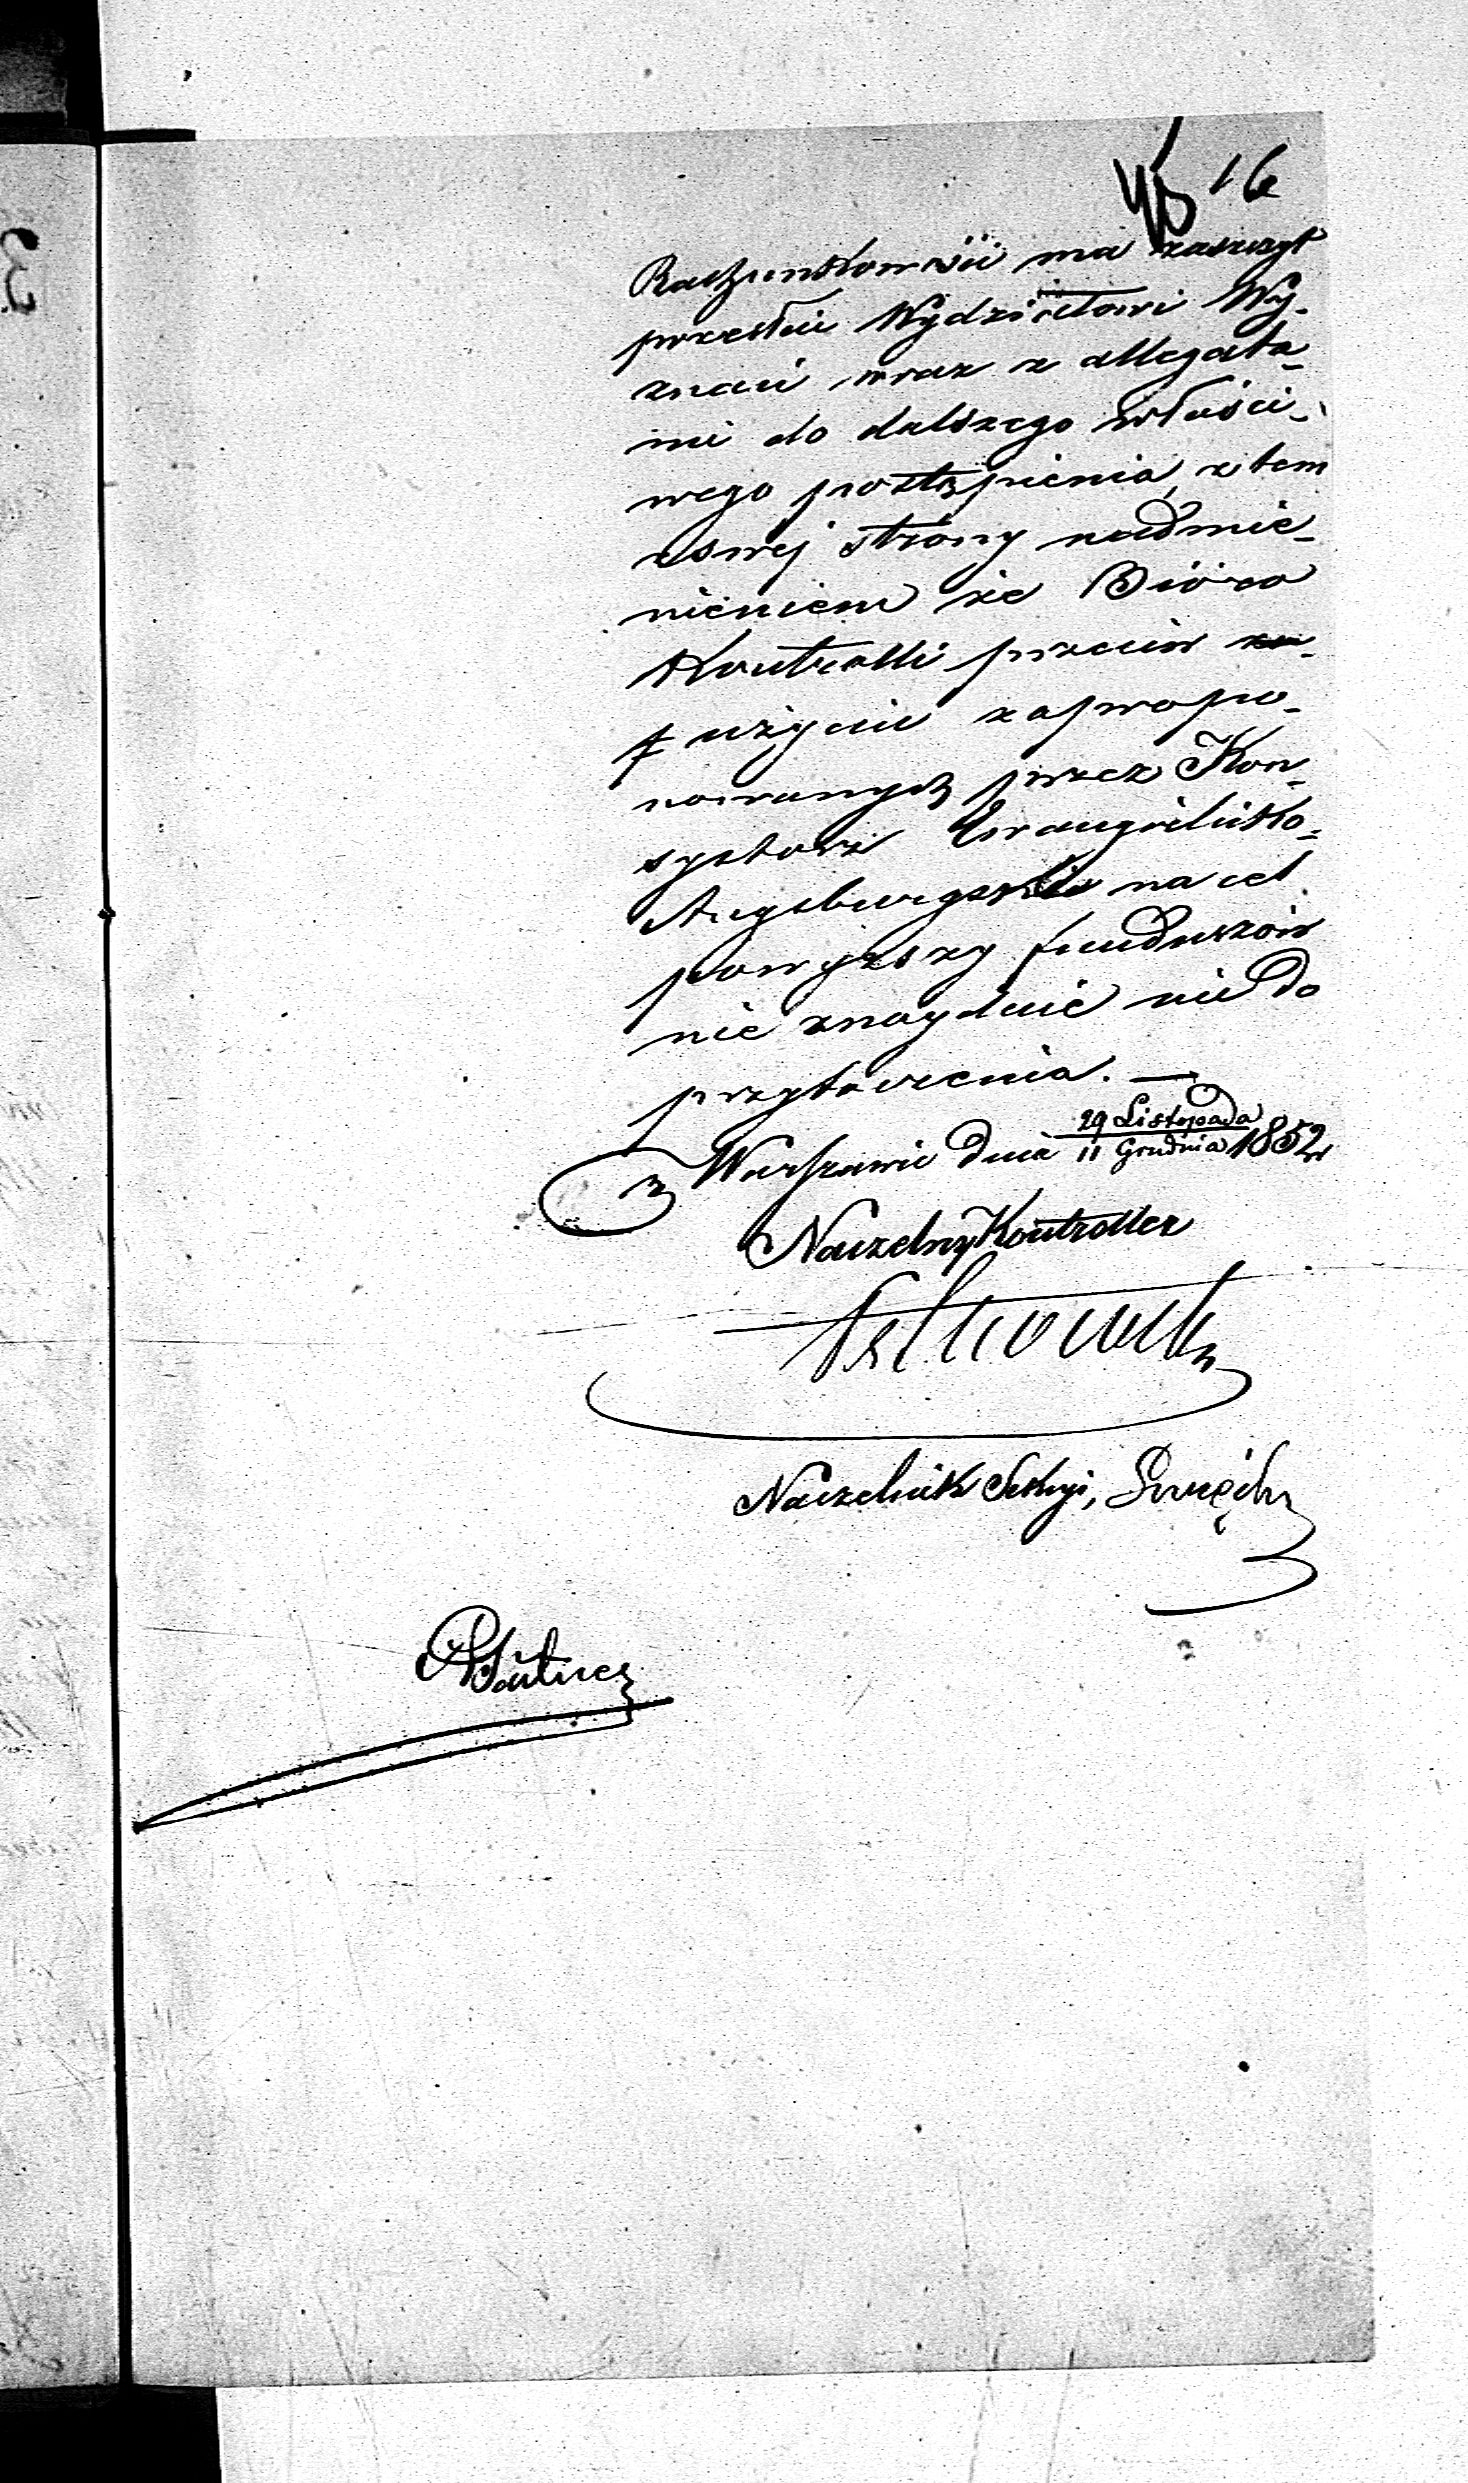 16
Rachunkowości ma zaszczyt
przesłać Wydziałowi Wy-
znań wraz z allegata-
mi do dalszego właści-
wego postąpienia, z tem
z swej strony nadmie-
nieniem że Bióro
Kontrolli przeciw
użyciu zapropo-
nowanych przez Kon-
systorz Ewangielicko-
Augsburgski na cel
powyższy funduszów
nie znajduje nic do
przytoczenia. —
w Warszawie dnia 29 Listopada / 11 Grudnia 1852 r
Naczelny Kontroller
Naczelnik Sekcyi,